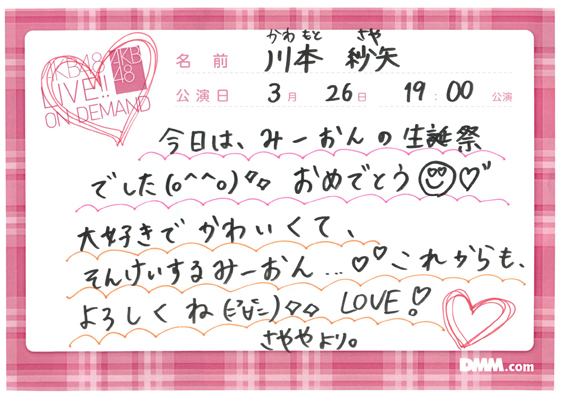 AKB48
LIVE!!
ON DEMAND
AKB
48
かわもと さや
名前 川本 紗矢
公演日 3月 26日 19:00 公演
今日は、みーおんの生誕祭
でした(o^^o) おめでとう♡"
大好きでかわいくて、
そんけいするみーおん...♡♡これからも、
よろしくね LOVE!
さややより。
DMM.com